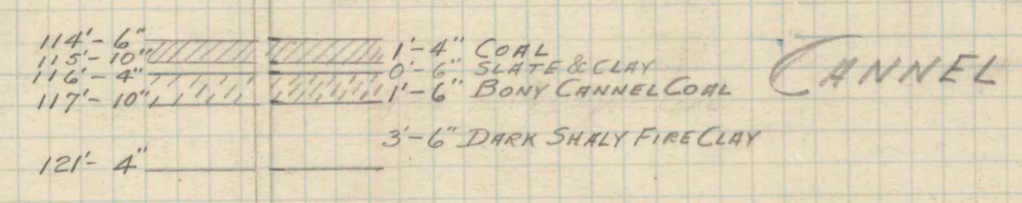 114'- 6"
115'- 10"
116'- 4"
117'- 10"
121'- 4"
1'-4" COAL
0'-6" SLATE & CLAY
1'-6" BONY CANNEL COAL
3'-6" DARK SHALY FIRE CLAY
CANNEL